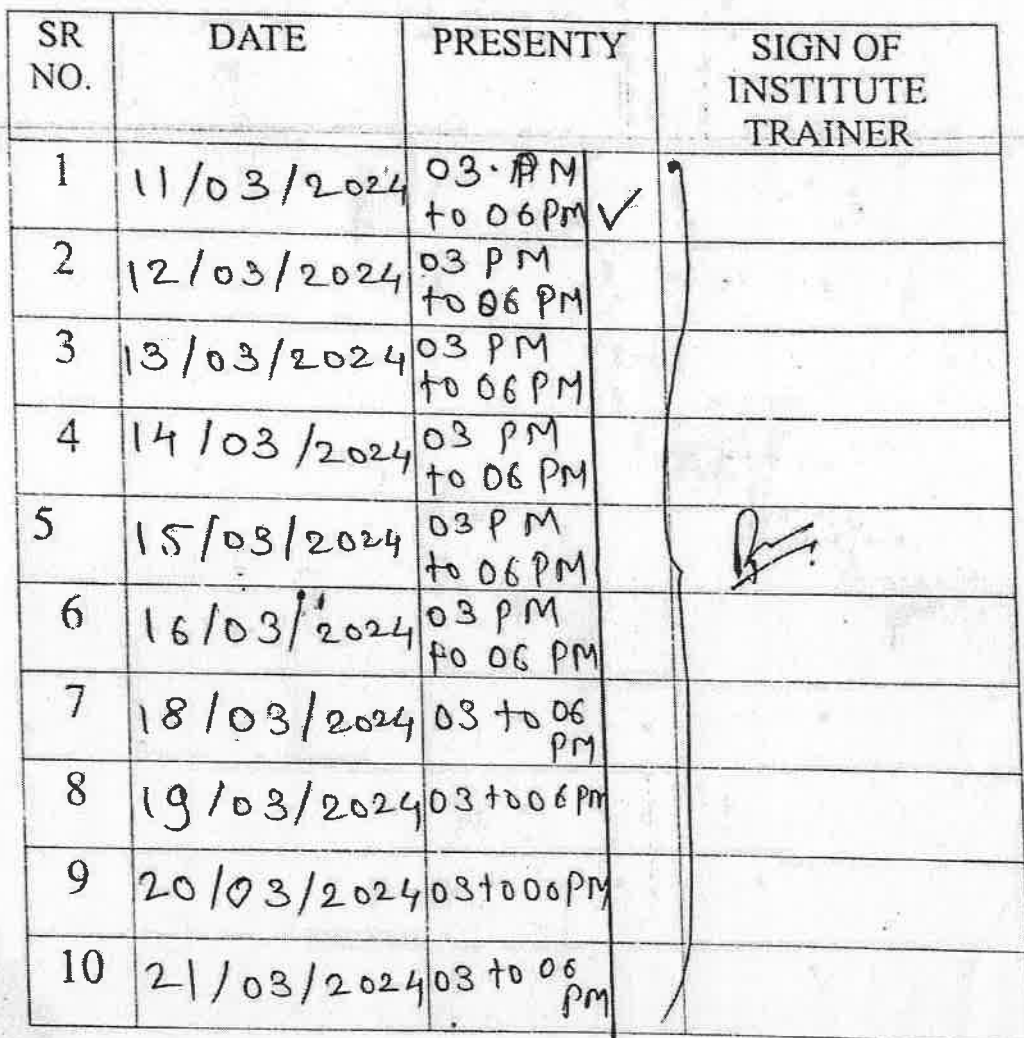 SR NO. DATE PRESENTY SIGN OF INSTITUTE TRAINER
1 11/03/2024 03. AM to 06 PM ✓
2 12/03/2024 03 PM to 06 PM
3 13/03/2024 03 PM to 06 PM
4 14/03/2024 03 PM to 06 PM
5 15/03/2024 03 PM to 06 PM
6 16/03/2024 03 PM to 06 PM
7 18/03/2024 03 to 06 PM
8 19/03/2024 03 to 06 PM
9 20/03/2024 03 to 00 PM
10 21/03/2024 03 to 06 PM